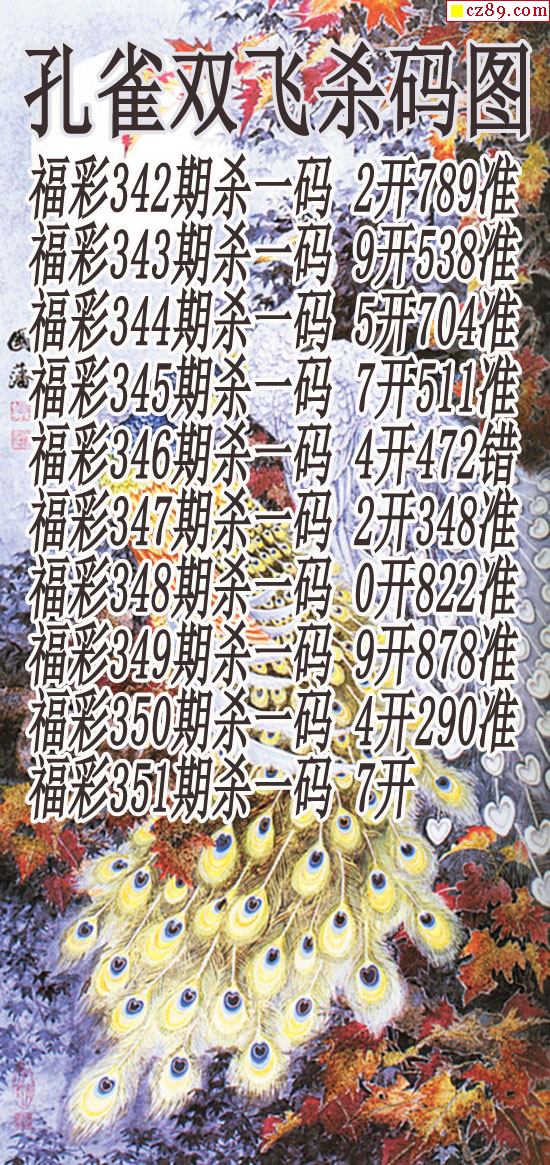 cz89.com
孔雀双飞杀码图
福彩342期杀一码 2开789准
福彩343期杀一码 9开538准
福彩344期杀一码 5开704准
福彩345期杀一码 7开511准
福彩346期杀一码 4开472错
福彩347期杀一码 2开348准
福彩348期杀一码 0开822准
福彩349期杀一码 9开878准
福彩350期杀一码 4开290准
福彩351期杀一码 7开